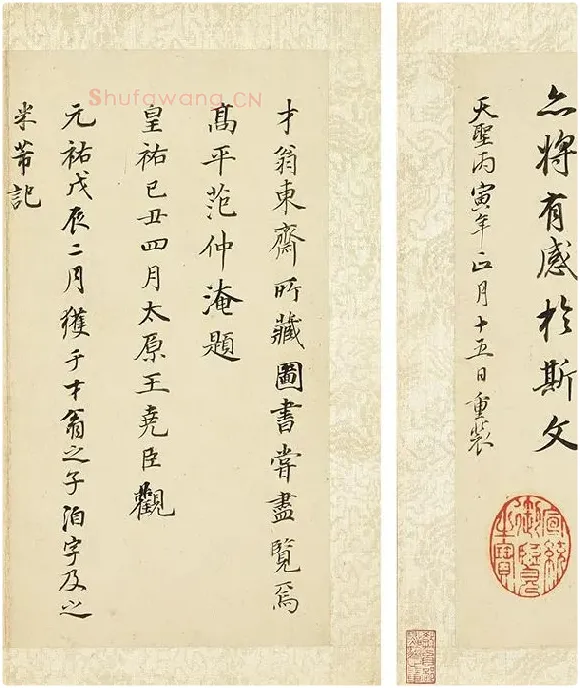 亦將有感於斯文
天聖丙寅年正月十五日重裝
才翁東齋所藏圖書嘗盡覽焉
高平范仲淹題
皇祐己丑四月太原王堯臣觀
元祐戊辰二月獲于才翁之子洎字及之
米芾記
宣統御覽之寶
Shufawang.CN